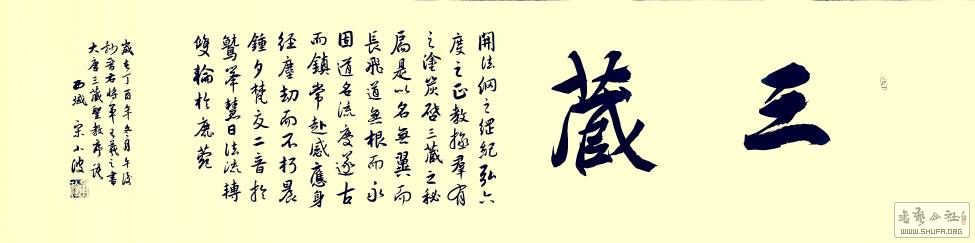 三藏
開法網之綱紀弘六
度之正教拯群有
之塗炭啓三藏之秘
扃是以名無翼而
長飛道無根而永
固道名流慶遂古
而鎮常赴感應身
經塵劫而不朽晨
鍾夕梵交二音於
鷲峯慧日法流轉
雙輪於鹿菀
歲在丁酉年冬月午後
抄晉右將軍王羲之書
大唐三藏聖教序語
西域 宋小波
書藝公社
WWW.SHUFA.ORG